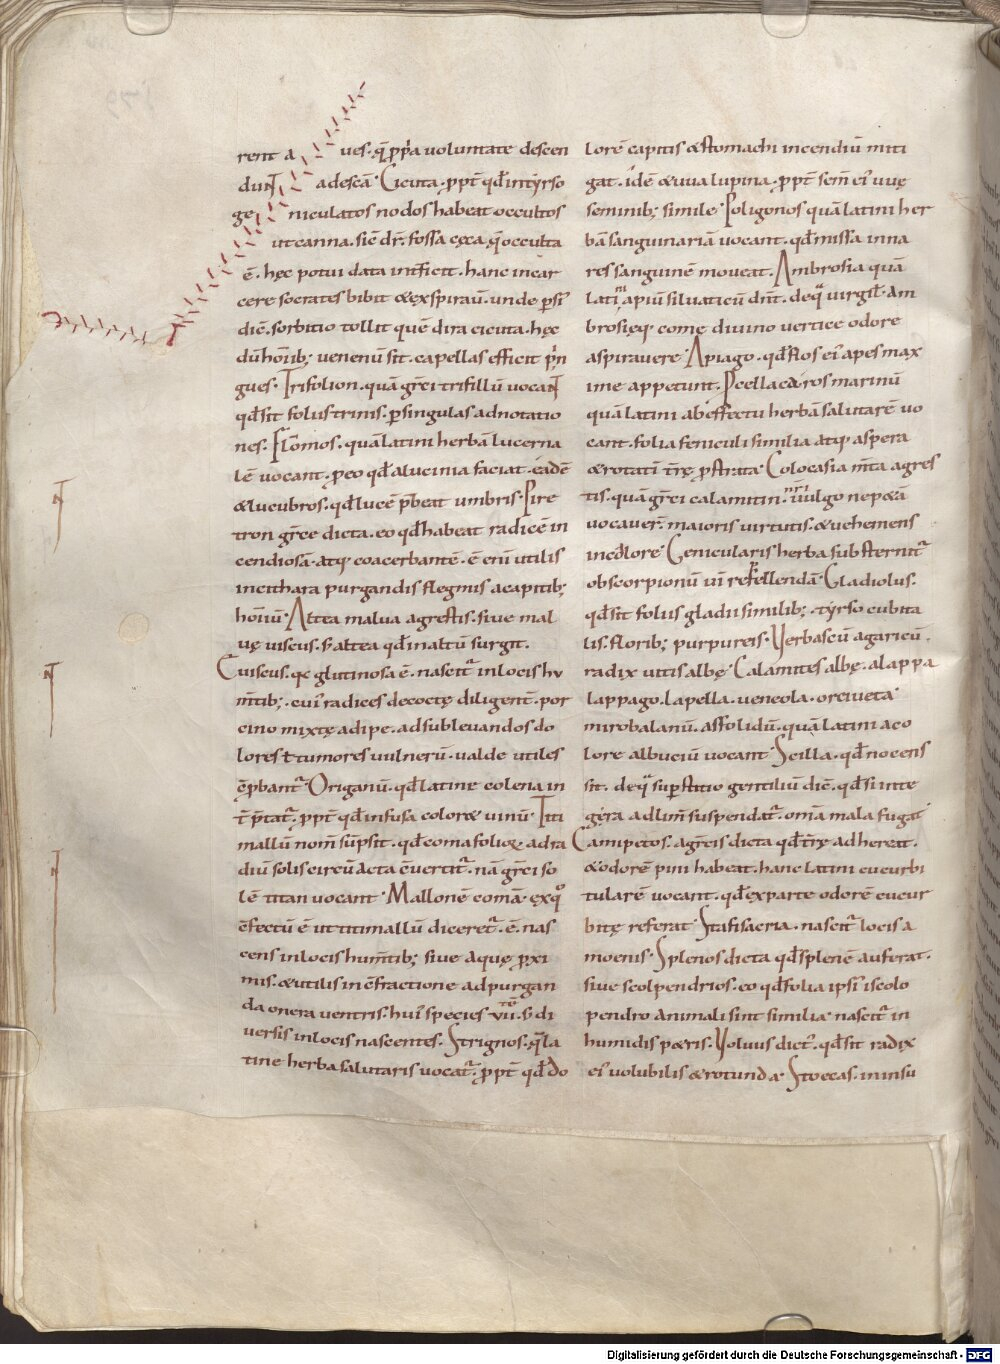 rent a ues. q̄ ꝓpͥa uoluntate descen
dunt ad escā. Cicuta. ꝓpt̄ qđ in tẏrso
geniculatos nodos habeat occultos
ut canna. sic̄ dr̄. fossa cęca. q̄ occulta
ē. hęc potui data int̄ficit. hanc in car
cere socrates bibit & exspirauit. unde ꝑsi
diē. sorbitio tollit quē dira cicuta. hęc
dū hoīb; uenenū sit. capellas efficit pin
gues. Trifolion. quā gręci trifillū uocant
qđ sit foliis trinis. ꝑ singulas adnotatio
nes. Flomos. quā latini herbā lucerna
lē uocant. ꝓ eo qđ a lucinia faciat. eadē
& lucubros. qđ lucē p̄beat umbris. Pire
tron grece dicta. eo qđ habeat radicē in
cendiosā. atq; coacerbantē. ē enī utilis
in cithara purgandis flegmis a capitib;
hoīuū. Altea malua agrestis. siue mal
uę uiscus. s; altea qđ in altū surgit.
Cuiscus. qę glutinosa ē. nascit̄ in locis hu
m̄tib;. cuiꝰ radices decoctę diligent̄. por
cino mixtę adipe. ad subleuandos do
lores ł tumores uulnerū. ualde utiles
cp̄bant̄. Origanū. qđ latine colena in
t̄p̄tat̄. ꝓpt̄ qđ infusa coloret uinū. Titi
mallū nom̄ sūpsit. qđ coma folioꝝ ad ra
diū solis circū acta cuertit̄. nā gręci so
lē titan uocant. Mallonē comā. ex qͦ
c̄fectū ē ut titimallū diceret̄. ē. nas
cens in locis hum̄tib; siue aquę ꝓxi
mis. & utilis in c̄fractione ad purgan
da onera uentris. huiꝰ species vii. s; di
uersis in locis nascentes. Strignos. q̄ la
tine herba salutaris uocat̄. ꝓpt̄ qđ do
lorē capitis & stomachi incendiū miti
gat. idē & uua lupina. ꝓpt̄ sem̄ eiꝰ uuę
seminib; simile. Poligonos quā latini her
bā sanguinariā uocant. qđ missa in na
res sanguinē moueat. Ambrosia quā
latini apiū siluaticū dn̄t. de q̄ uirgil. Am
brosięq; comę diuino uertice odore
aspirauere. Apiago. qđ flos eiꝰ apes max
ime appetunt. Pcella & ros marinū
quā latini ab effectu herbā salutarē uo
cant. folia feniculi similia atq; aspera
& rotati t̄rę ꝓstrata. Colocasia m̄ta agres
tis. quā gręci calamitin. nr̄i uulgo nepetā
uocauer̄. maioris uirtutis. & uehemens
in colore. Genicularis herba substernit̄
ob scorpionū uī refellendā. Gladiolus.
qđ sit foliis gladii similib;. tẏrso cubita
lis. florib; purpureis. Verbascū agaricū.
radix uitis albę. Calamites albę. alappa
lappago. lapella. ueneola. orciueta.
mirobalanū. assolidū. quā latini a co
lore albuciū uocant. Scilla. qđ nocens
sit. de q̄ suꝑstitio gentiliū diē. qđ si inte
gera ad lim̄ suspendat̄. om̄a mala fugat.
Camipetos. a gręcis dicta qđ t̄rę adhereat.
& odorē pini habeat. hanc latini cucurbi
tularē uocant. qđ ex parte odorē cucur
bitę referat. Stafisacria. nascit̄ locis a
moenis. Splenos dicta qđ splenē auferat.
siue scolpendrios. eo qđ folia ipsiꝰ iscolo
pendro animali sint similia. nascit̄ in
humidis petris. Voluus dictꝰ. qđ sit radix
eiꝰ uolubilis & rotunda. Stoecas. in insu
N
N
Digitalisierung gefördert durch die Deutsche Forschungsgemeinschaft - DFG